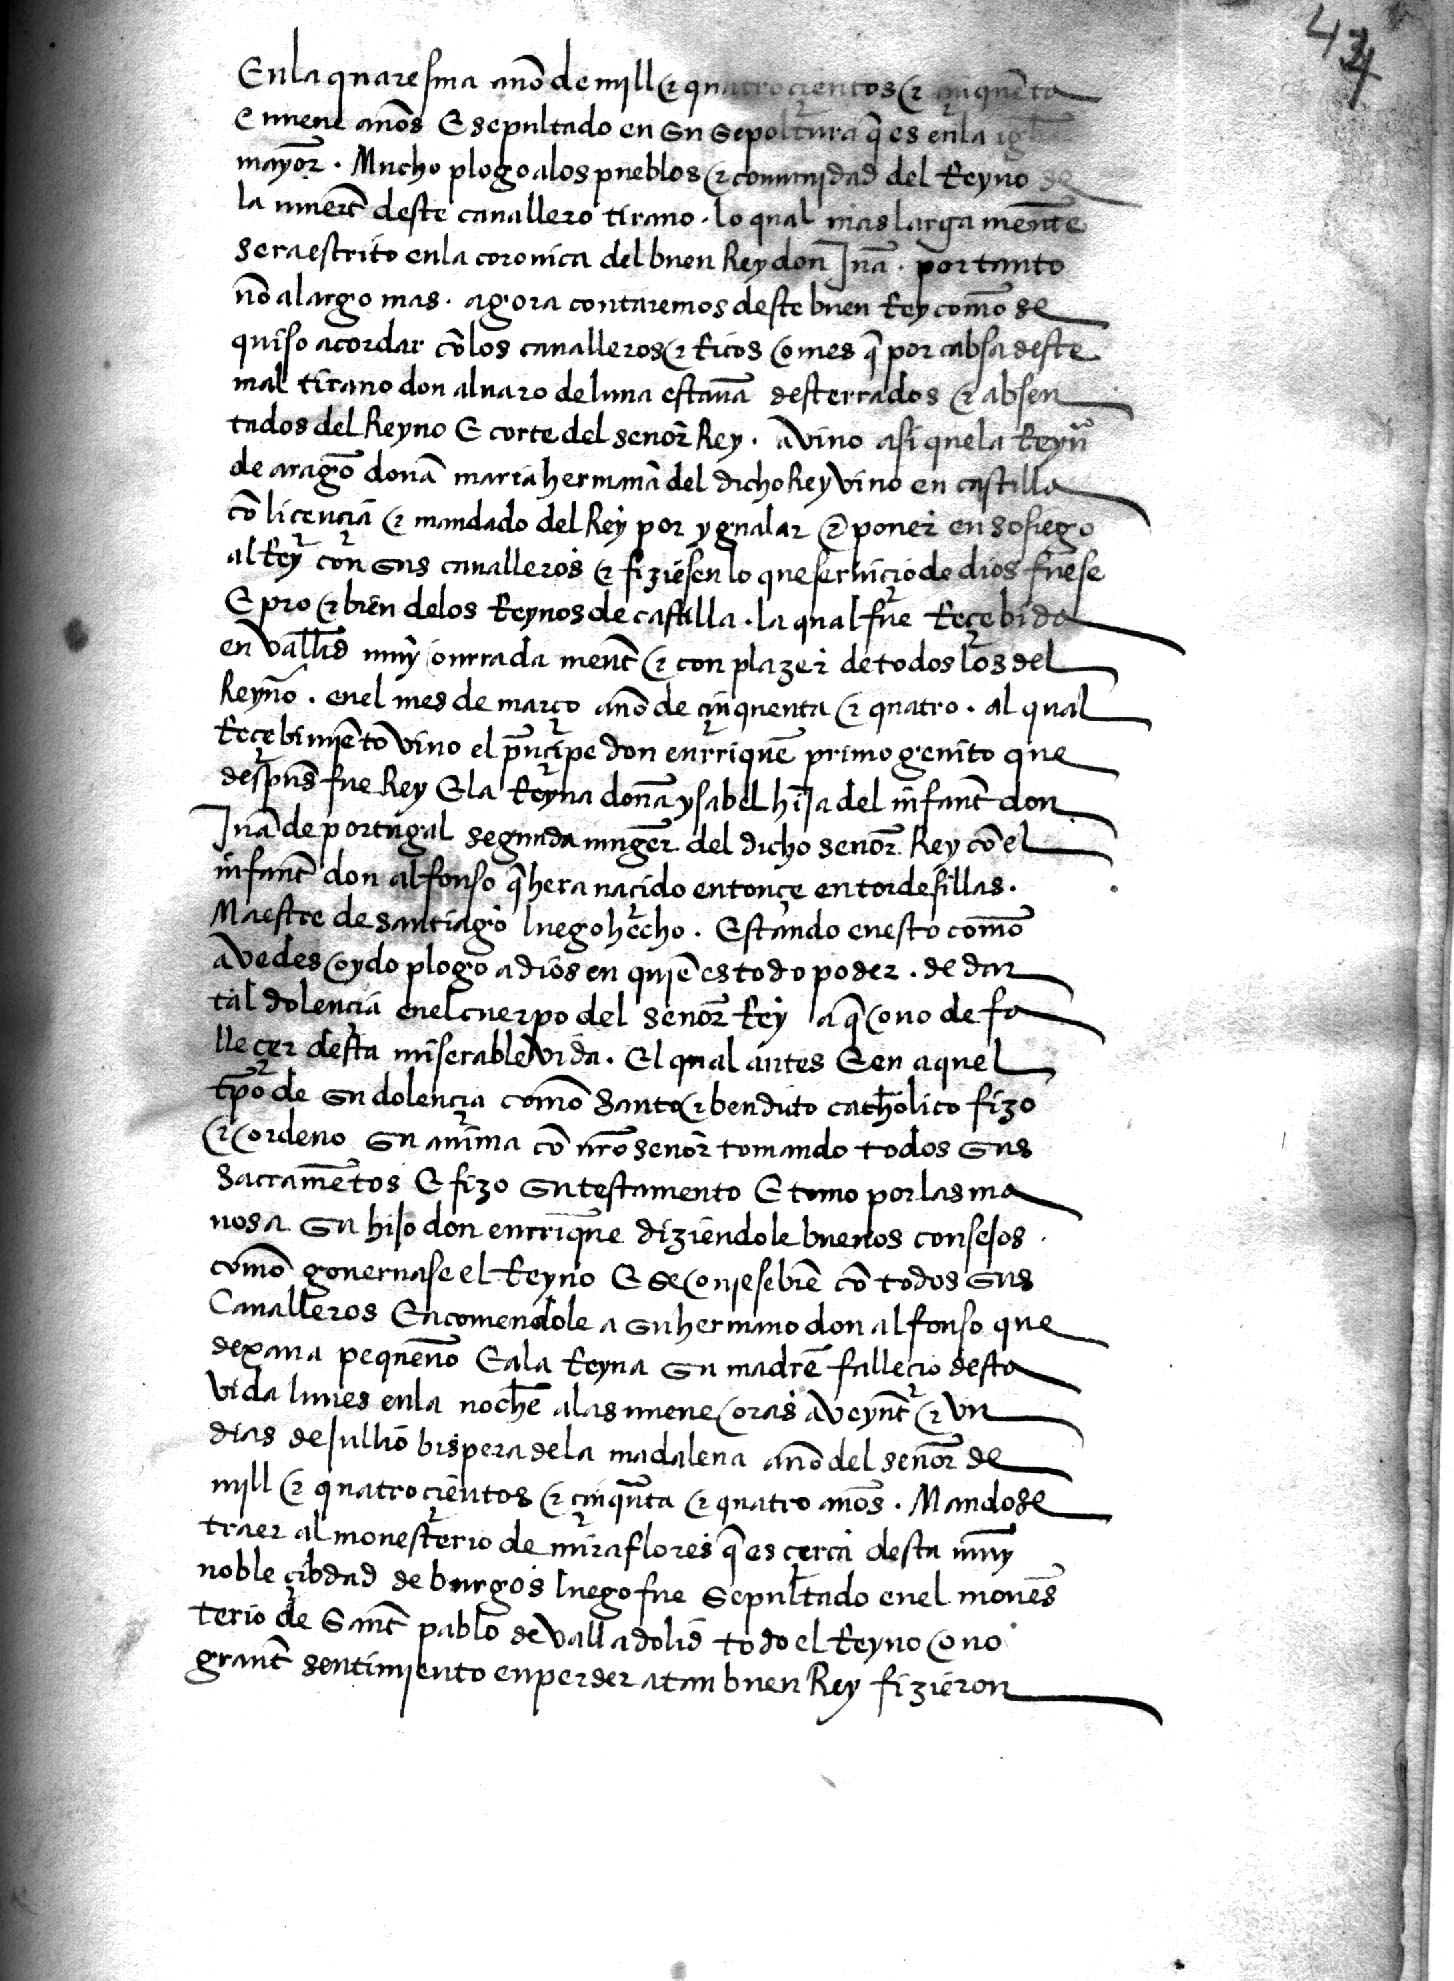 434
En la quaresma año de mill & quatroçientos & çinquēta
e nueve años E sepultado en su sepoltura q̄ es en la
mayor . Mucho plogo a los pueblos & comunidad del Reyno de
la muert̄ deste cavallero tirano . lo qual mas larga mente
sera escrito en la coronica del buen Rey don Juā . por tanto
no alargo mas . agora contaremos deste buen Rey como se
quiso acordar cō los cavalleros & Ricos omes q̄ por cabsa deste
mal tirano don alvaro de luna estavā desterrados & absen
tados del Reyno E corte del señor Rey . avino asi que la Reyna
de aragō doña maria hermana del dicho Rey vino en castilla
cō liçençia & mandado del Rey por ygualar & poner en sosiego
al Rey con sus cavalleros & fiziesen lo que serviçio de dios fuese
E pro & bien de los Reynos de castilla . la qual fue Reçebida
en vallid muy onrrada ment̄ & con plazer de todos los del
Reyno . en el mes de março año de çinquenta & quatro . al qual
Reçebimiēto vino el prinçipe don enrrique primo genito que
despues fue Rey E la Reyna doña ysabel hija del infant̄ don
Juā de portugal segunda muger del dicho señor Rey cō el
infant̄ don alfonso q̄ hera naçido entonçe en tordesillas .
Maestre de santiago luego hecho . Estando en esto como
avedes oydo plogo a dios en quiē es todo poder . de dar
tal dolençia en el cuerpo del señor Rey a q̄ ono de fa
lleçer desta miserable vida . El qual antes E en aquel
tpō de su dolençia como santo & bendito catholico fizo
& ordeno su anima cō nr̄o señor tomando todos sus
sacramētos E fizo su testamento E tomo por las ma
nos a su hijo don enrrique diziendole buenos consejos .
como governase el Reyno E se oviese biē cō todos sus
Cavalleros Encomendole a su hermano don alfonso que
dexava pequeño E a la Reyna su madre falleçio desta
vida lunes en la noche a las nueve oras a veynt̄ & un
dias de jullio bispera de la madalena año del señor de
mill & quatroçientos & çinqūta & quatro años . Mandose
traer al monesterio de miraflores q̄ es çerca desta muy
noble çibdad de burgos luego fue sepultado en el mones
terio de Sant̄ pablo de valladolid todo el Reyno ovo
grant̄ sentimiento en perder a tan buen Rey fizieron